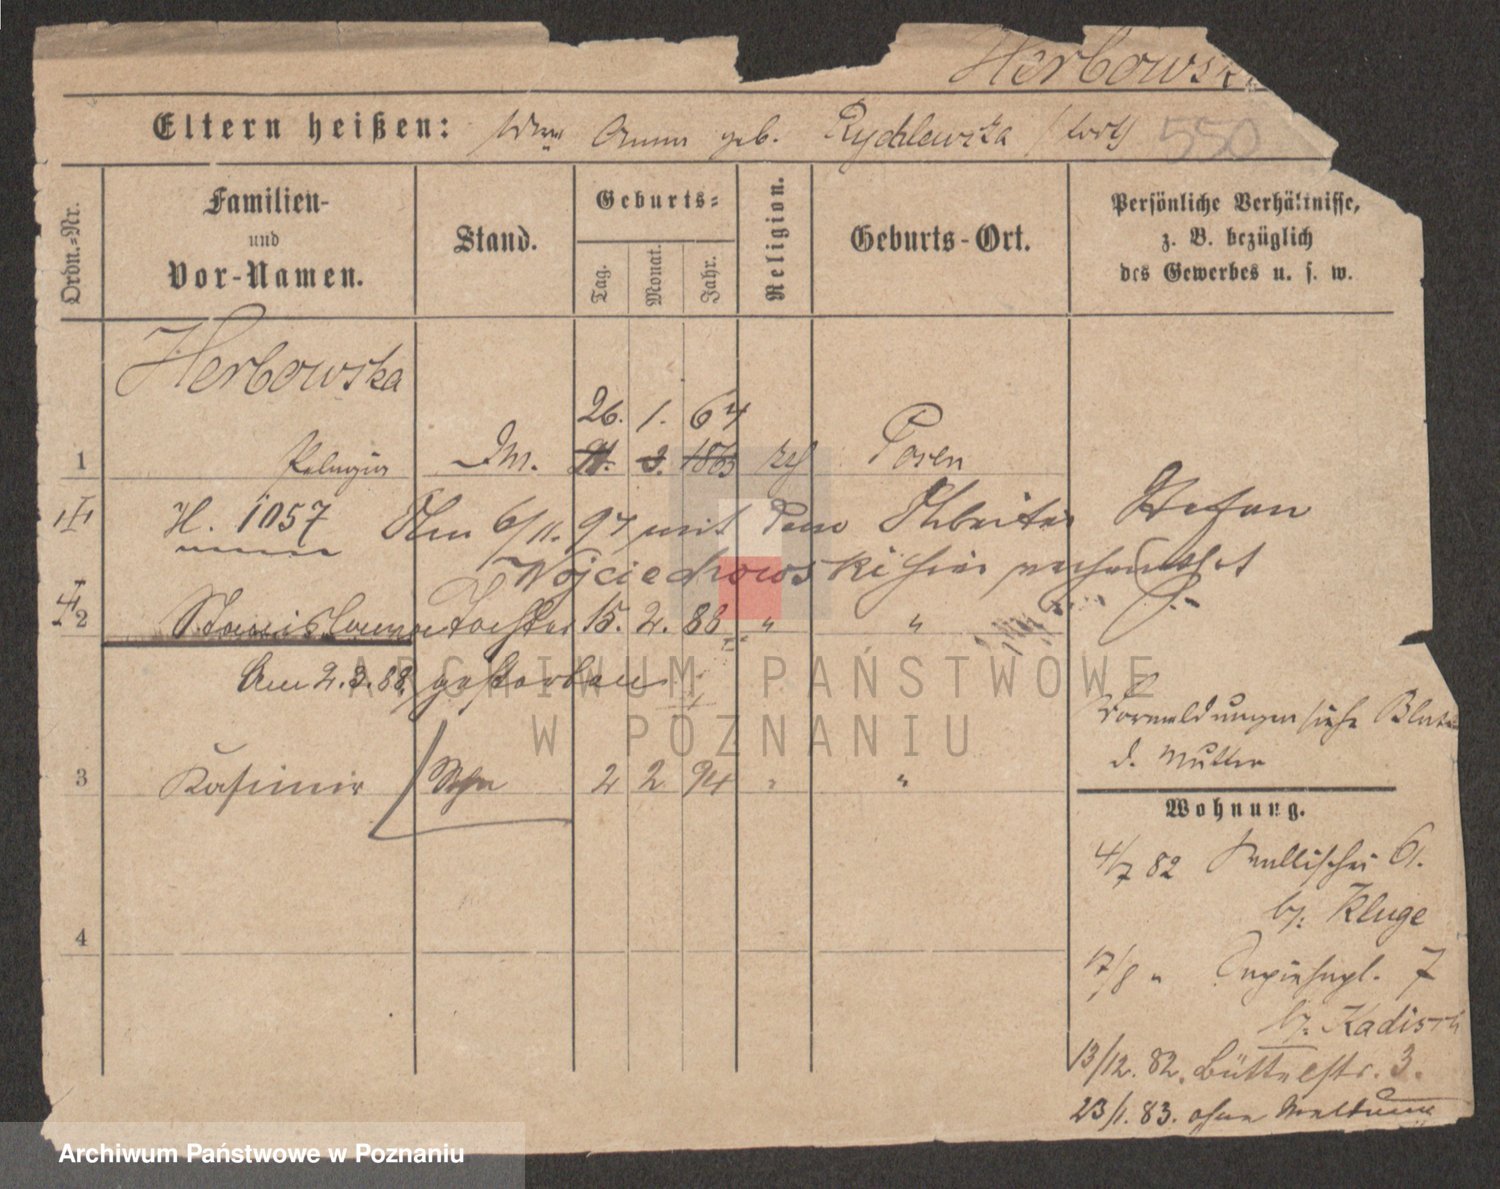 Herbowska
Eltern heißen: Anna geb. Rychlewska
550
Ordn.-Nr.
Familien-
und
Vor-Namen.
Stand.
Geburts-
Tag.
Monat.
Jahr.
Religion.
Geburts-Ort.
Persönliche Verhältnisse,
z. B. bezüglich
des Gewerbes u. s. w.
Herbowska
26. 1. 64
1 Pelagia Dm. 3. 1863 Posen
H. 1057 Am 6/11. 97 mit dem Arbeiter Stefan
Wojciechowski hier verheirathet
2 Stanislawa Tochter 15. 2. 88 " "
Am 2.3.88. gestorben
Vormeldungen siehe Blatt
d. Mutter
3 Kasimir Sohn 2 2 94 " "
Wohnung.
4/7 82 Wallischei 61.
bz. Kluge
4
17/8 " 7
bz. Kadisch
13/12. 82. Büttelstr. 3.
23/1. 83. ohne Meldung
ARCHIWUM PAŃSTWOWE
W POZNANIU
Archiwum Państwowe w Poznaniu